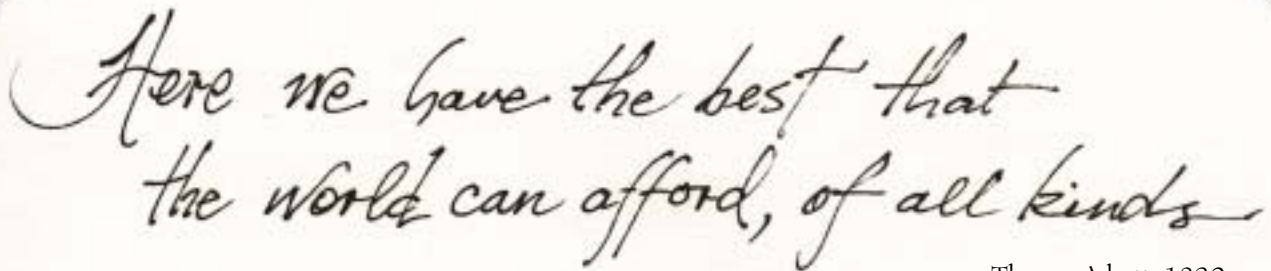 Here we have the best that
the world can afford, of all kinds